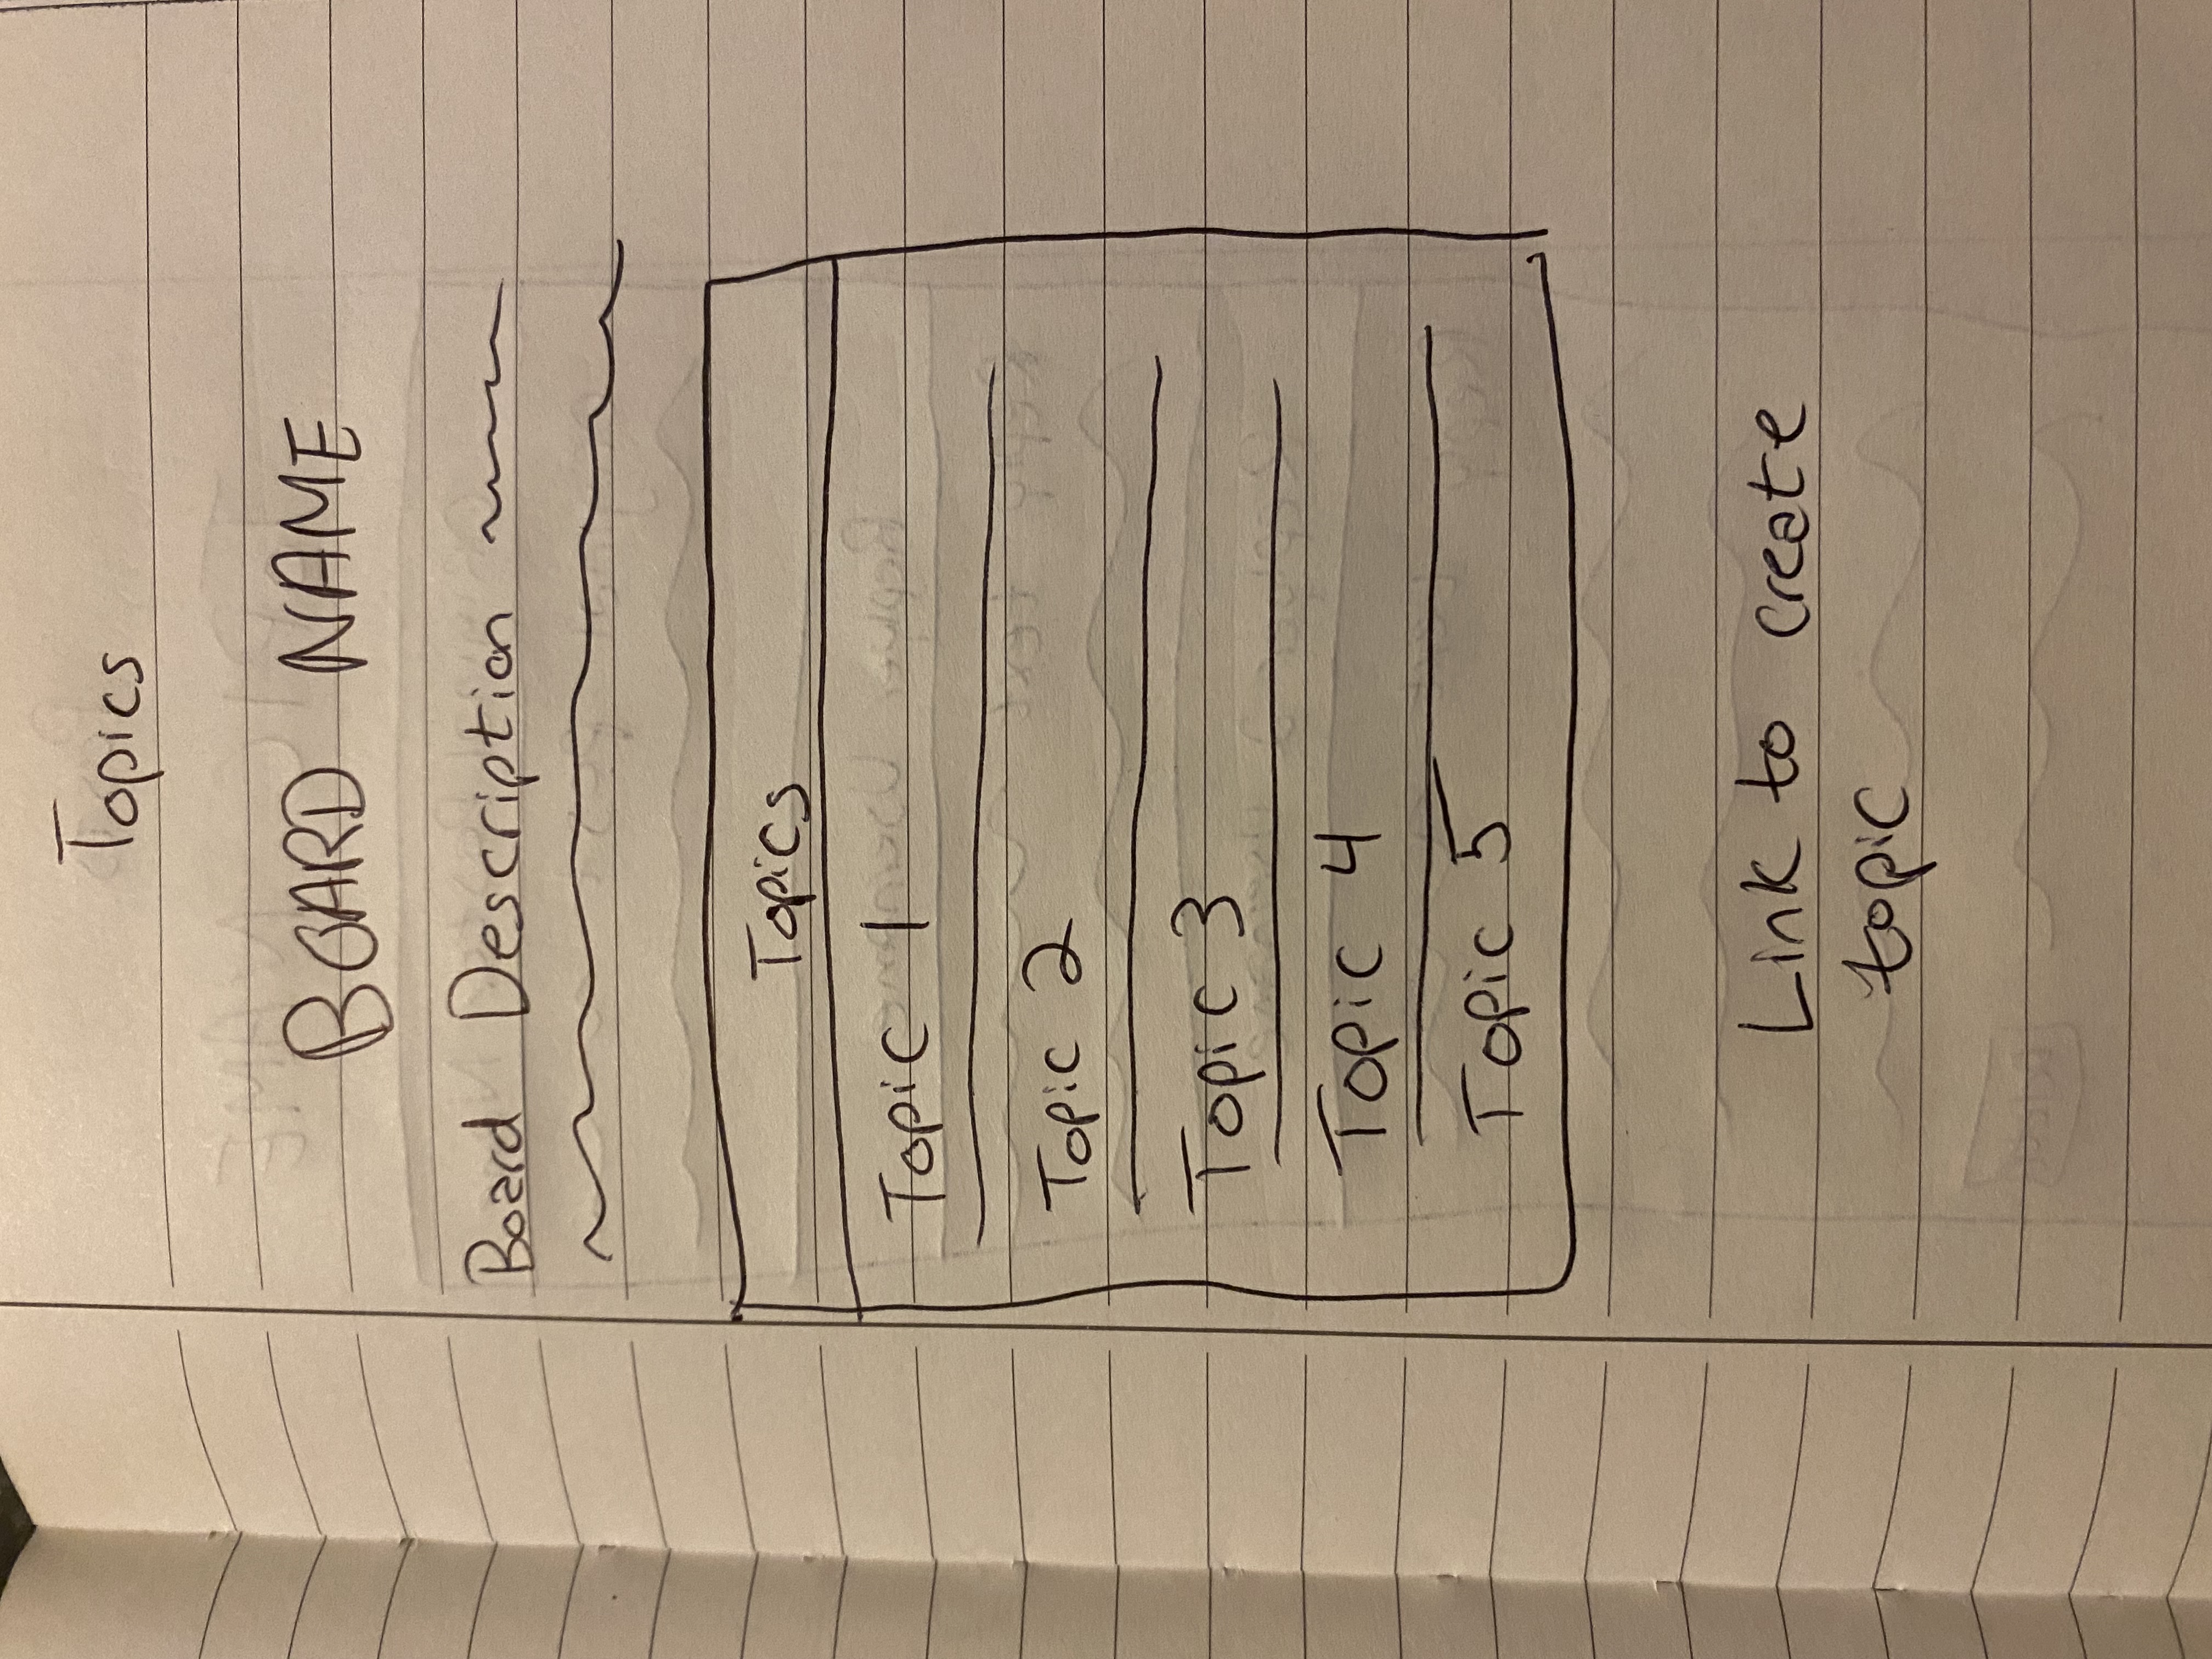 Topics
BOARD NAME
Board Description
Topics
Topic 1
Topic 2
Topic 3
Topic 4
Topic 5
Link to create
topic